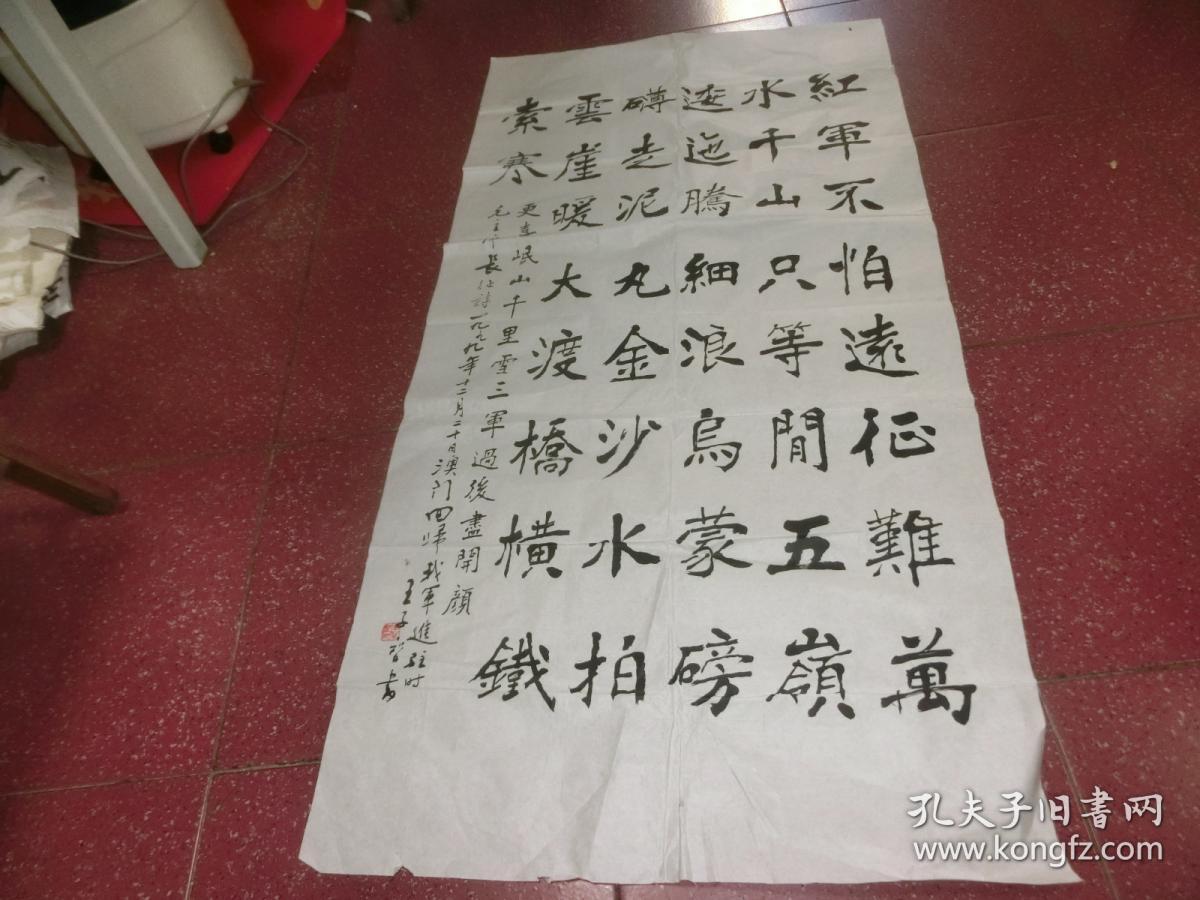 紅軍不怕遠征難萬
水千山只等閒五嶺
逶迤騰細浪烏蒙磅
礴走泥丸金沙水拍
雲崖暖大渡橋橫鐵
索寒
更喜岷山千里雪三軍過後盡開顏
毛主席長征詩一九九九年十二月二十日澳门回歸我軍進駐时
王子
书
孔夫子旧书网
www.kongfz.com